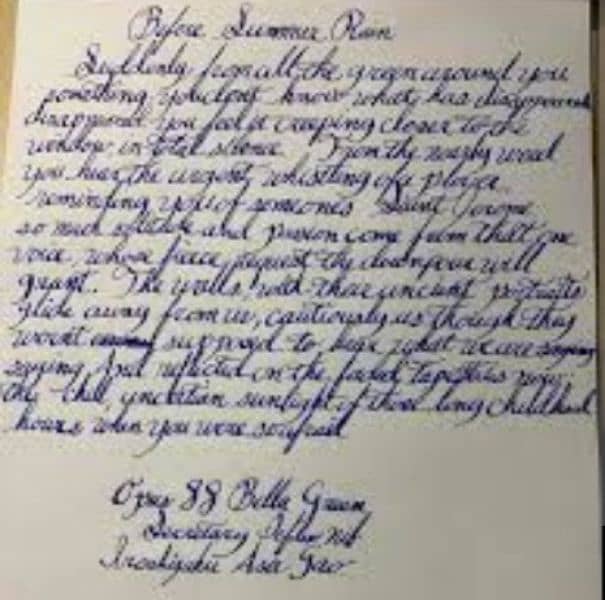 Before Summer Rain
Suddenly from all the green around you
something you dont know what has disappeared
disappeared you feel it creeping closer to the
window in total silence From the nearby wood
you hear the urgent whistling of a plover
reminding you of someones Saint Jerome
so much solitude and passion come from that one
voice whose fierce request the downpour will
grant. The walls, with their ancient portraits
glide away from us, cautiously as though they
werent supposed to hear what we are saying
saying. And reflected on the faded tapestries now;
the chill, uncertain sunlight of those long childhood
hours when you were so afraid
Opus 88 Bella Green
Secretary Nib
Iroshizuku Asa Gao